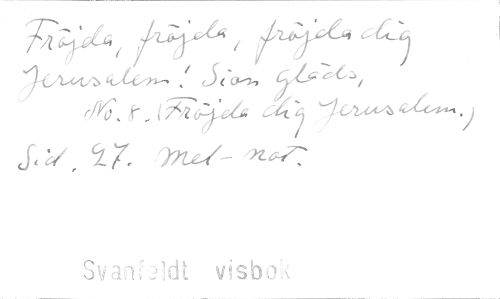 Fröjda, fröjda, fröjda dig
Jerusalem! Sion gläds,
No. 8. (Fröjda dig Jerusalem.)
Sid. 27. Mel-not.
Svanfeldt visbok